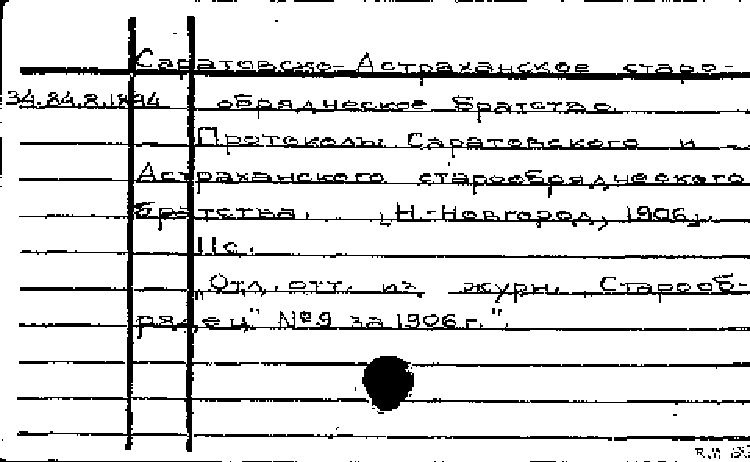 Саратовско-Астраханское старо-
34.84.8.1894 обрядческое братство.
Протоколы Саратовского и
Астраханского старообрядческого
братства. [Н.-Новгород, 1906].
11с.
„Отд. отт. из журн. Старооб-
рядец" №9 за 1906 г.".